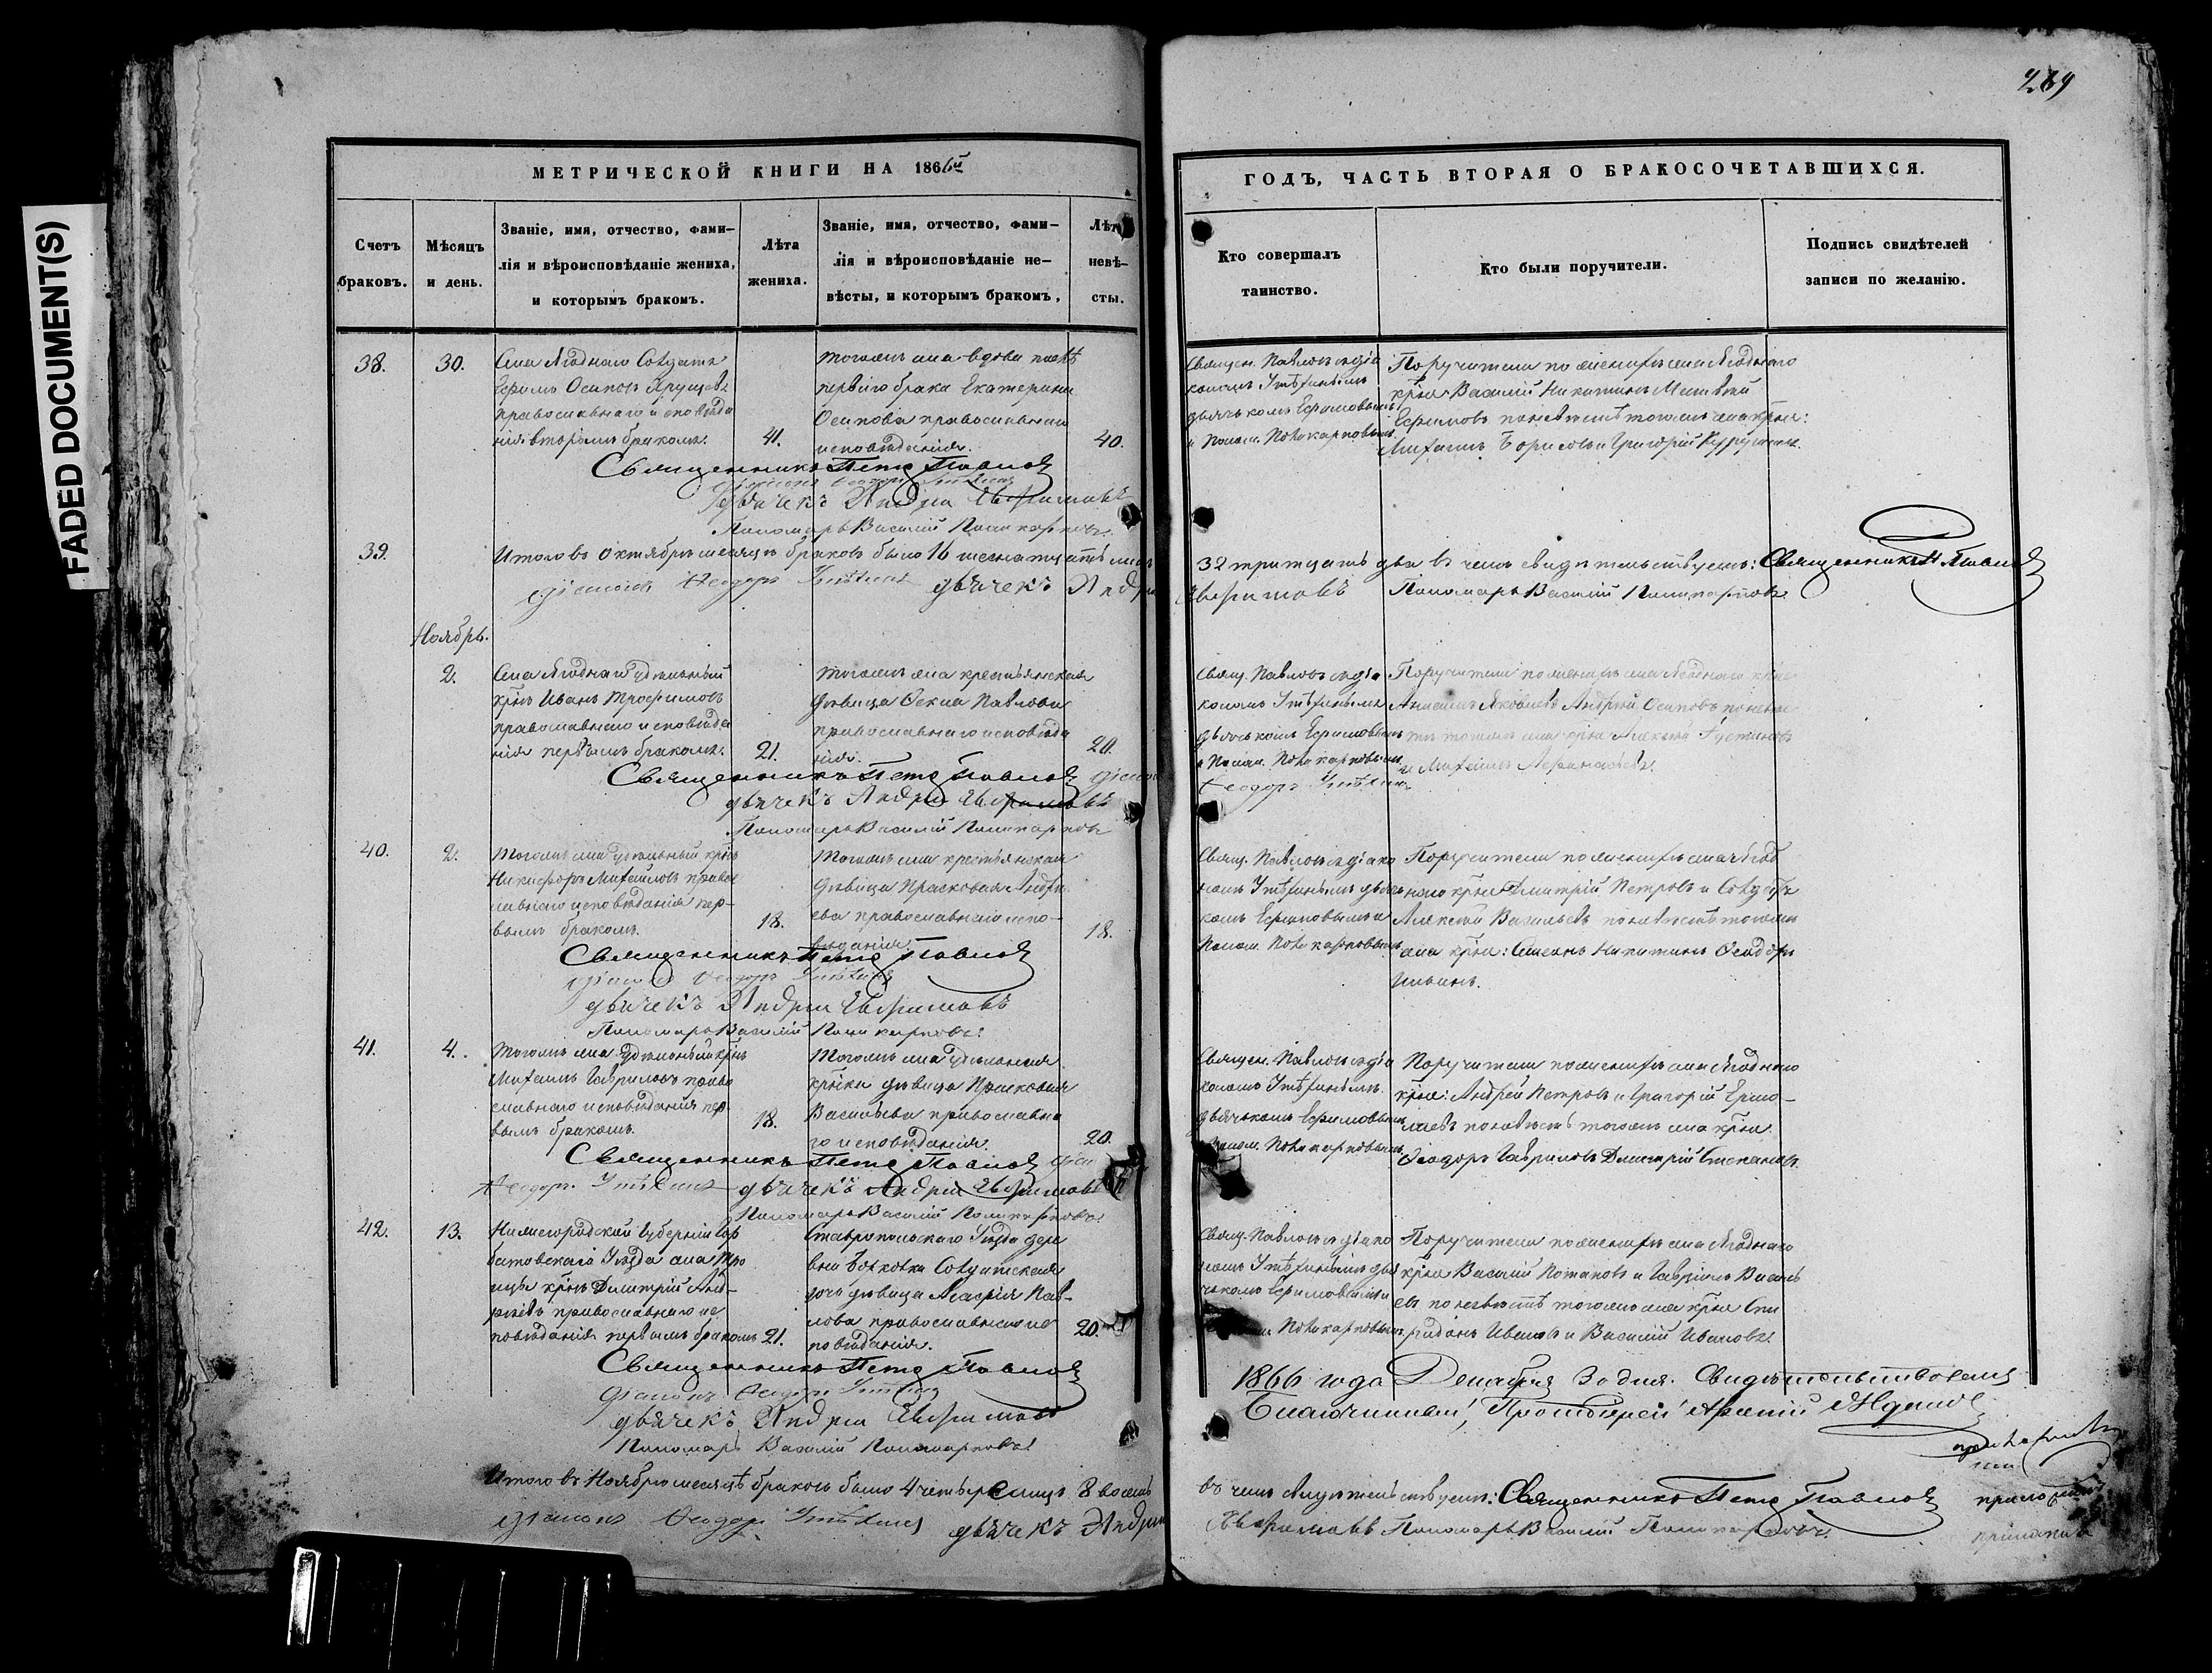 FADED DOCUMENT(S)
289
МЕТРИЧЕСКОЙ КНИГИ НА 1866й
ГОДЪ, ЧАСТЬ ВТОРАЯ О БРАКОСОЧЕТАВШИХСЯ.
Счетъ
браковъ.
Мѣсяцъ
и день.
Званіе, имя, отчество, фами-
лія и вѣроисповѣданіе жениха,
и которымъ бракомъ.
Лѣта
жениха.
Званіе, имя, отчество, фами-
лія и вѣроисповѣданіе не-
вѣсты, и которымъ бракомъ,
Лѣт
невѣ-
сты.
Кто совершалъ
таинство.
Кто были поручители.
Подпись свидѣтелей
записи по желанію.
38.
30.
Села Ягоднаго Солдатъ
Ефимъ Осиповъ
православнаго исповѣда
нія вторымъ бракомъ.
41.
тогожъ села вдова послѣ
перваго брака Екатерина
Осипова православнаго
исповѣданія.
40.
Священ. Павловъ съ діа
кономъ
дьячькомъ Ефимовымъ
и Поном. Поликарповымъ
Поручители по женихѣ села Ягоднаго
крѣне Василій Никитинъ Матвей
Ефимовъ по невѣстѣ тогожъ села крѣне:
Михаилъ Борисовъ и Григорій
Священникъ Петръ Павловъ
дьячекъ Андрей Ефимовъ
Пономарь Василій Поликарповъ
39.
Итого въ Октябрѣ месяцѣ браковъ было 16 шеснатцать лицъ
32 тритцать два въ чемъ свидѣтельствуемъ: Священникъ П. Павловъ
діаконъ Ѳеодоръ дьячекъ Андрей
Ефимовъ Пономарь Василій Поликарповъ
Ноябрь.
2.
Села Ягоднаго удѣльный
крѣнъ Иванъ Трофимовъ
православнаго исповѣда
нія первымъ бракомъ.
21.
тогожъ села крестьянская
дѣвица Ѳекла Павлова
православнаго исповѣда
нія.
20.
Свящ. Павловъ съ діа
кономъ
дьячькомъ Ефимовымъ
и Поном. Поликарповымъ
Поручители по женихѣ села Ягоднаго крѣне
Яковлевъ Андрей Осиповъ по невѣ
стѣ тогожъ села крѣне Алексѣй
и Михаилъ
Священникъ Петръ Павловъ діаконъ
Ѳеодоръ
дьячекъ Андрей Ефимовъ
Пономарь Василій Поликарповъ
40.
2.
Тогожъ села удѣльный крѣнъ
Никифоръ Михайловъ право
славнаго исповѣданія пер-
вымъ бракомъ.
18.
Тогожъ села крестьянская
дѣвица Прасковья Андре
ева православнаго испо-
вѣданія.
18.
Свящ. Павловъ съ діако
номъ дьячь
комъ Ефимовымъ и
Поном. Поликарповымъ
Поручители по женихѣ села Ягод
наго крѣне Дмитрій Петровъ и Солдатъ
Алексей Васильевъ по невѣстѣ тогожъ
села крѣне: Никитинъ Ѳеодоръ
Ильинъ.
Священникъ Петръ Павловъ
діаконъ Ѳеодоръ
дьячекъ Андрей Ефимовъ
Пономарь Василій Поликарповъ
41.
4.
Тогожъ села удѣльный крѣнъ
Михаилъ Гавриловъ право
славнаго исповѣданія пер-
вымъ бракомъ.
18.
Тогожъ села удѣльная
крѣнка дѣвица Прасковья
Васильева православна
го исповѣданія.
20.
Священ. Павловъ съ діа
кономъ
дьячькомъ Ефимовымъ
Поном. Поликарповымъ
Поручители по женихѣ села Ягоднаго
крѣне: Андрей Петровъ и Григорій Ермо-
лаевъ по невѣстѣ тогожъ села крѣне
Ѳеодоръ Гавриловъ Дмитрій Степановъ.
Священникъ Петръ Павловъ діаконъ
Ѳеодоръ дьячекъ Андрей Ефимовъ
Пономарь Василій Поликарповъ
42.
13.
Нижегородской Губерніи Гор
батовскаго Уѣзда села
крѣнъ Дмитрій Анд-
реевъ православнаго ис
повѣданія первымъ бракомъ
21.
Ставропольскаго Уѣзда дере
вни Борковки Солдатская
дочь дѣвица Пав-
лова православнаго ис
повѣданія.
20.
Свящ. Павловъ съ діако
номъ дья
чькомъ Ефимовымъ и
Поликарповымъ
Поручители по женихѣ села Ягоднаго
крѣне Василій Потаповъ и Гаврилъ Василь
евъ по невѣстѣ тогожъ села крѣне Спи
ридонъ Ивановъ и Василій Ивановъ.
Священникъ Петръ Павловъ
діаконъ Ѳеодоръ
дьячекъ Андрей Ефимовъ
Пономарь Василій Поликарповъ
1866 года Декабря 30 дня. Свидѣтельствовалъ
Благочинный, Протоіерей Арсеній
Итого въ Ноябрѣ месяцѣ браковъ было 4 четыре лицъ 8 восемь
въ чемъ свидѣтельствуемъ: Священникъ Петръ Павловъ
діаконъ Ѳеодоръ дьячекъ Андрей
Ефимовъ Пономарь Василій Поликарповъ